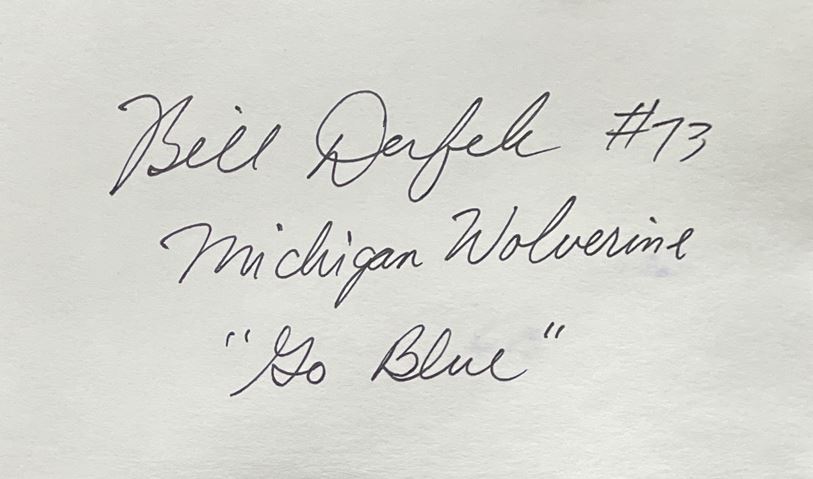 Bill Dufek #73
Michigan Wolverine
"Go Blue"